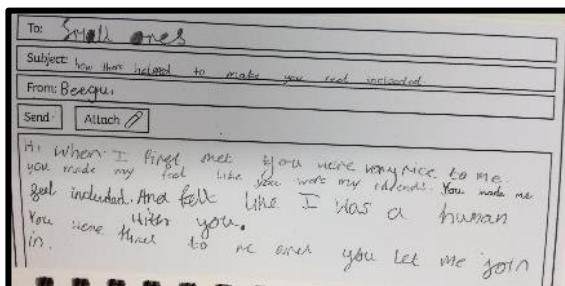 To: Small ones
Subject: how they helped to make you feel included.
From: Beegu
Send Attach
Hi when I first met you were very nice to me.
you made my feel like you were my friends. You made me
feel included. And felt like I was a human
with you.
You were kind to me and you let me join
in.